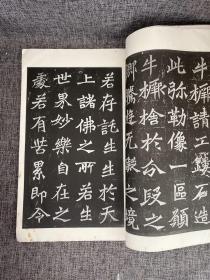 牛橛請工鏤石造
此弥勒像一區願
牛橛捨於分段之
鄉騰遊无礙之境
若存託生生於天
上諸佛之所若生
世界妙樂自在之
處若有苦累即令